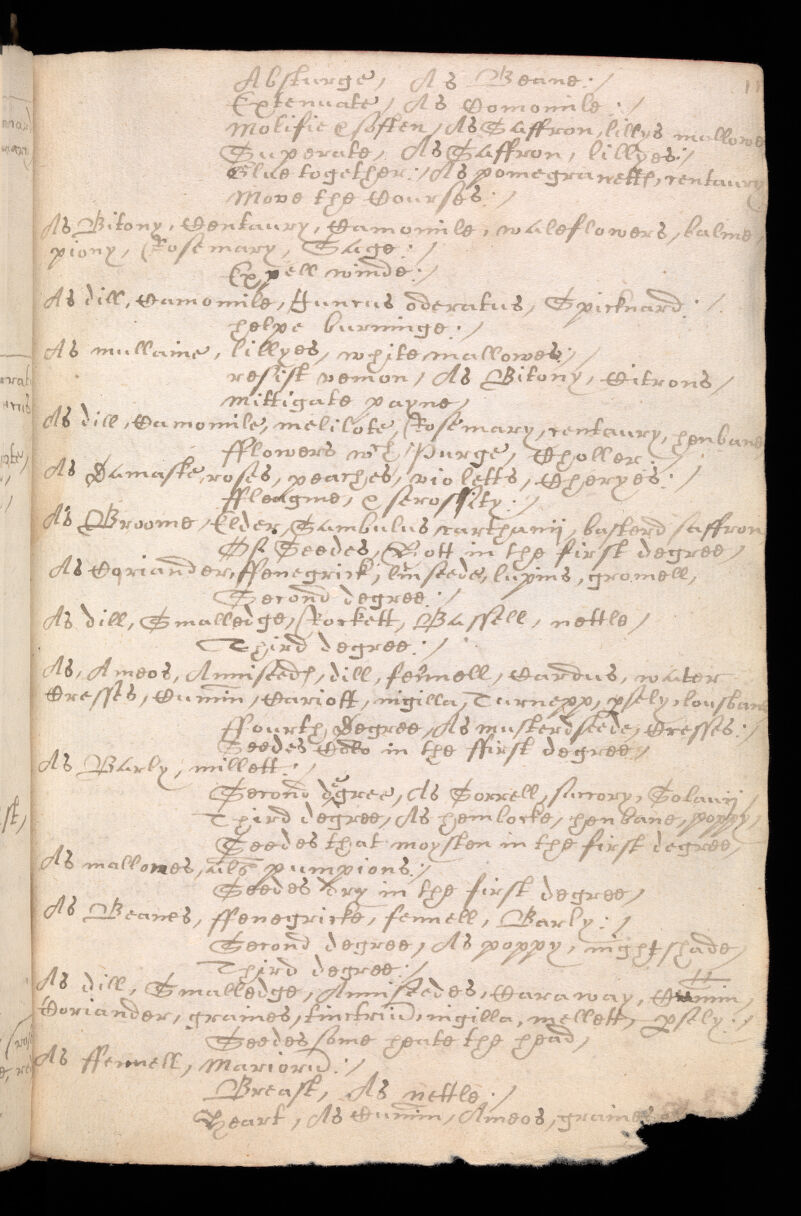 Absturge, As Beane:/
Extenuate, As Comomile:/
Molifie & soften, As Saffron, lillys mallowe
Superate, As Saffron, lillyes:/
Glue together:/ As pomegranetts, centaury
Move the Courses:/
As Bitony, Centaury, Camomile, waleflowers, balme
piony, Rosemary, Sage:/
Expell winde:/
As dill, Camomile, Juncus oderatus, Spicknard:/
helpe burninge:/
As mullaine, lillyes, white mallowes:/
resist vemon, As Bitony, Citrons,/
mittigate payne,/
As dill, Camomile, melilote, Rosemary, centaury, henbane
fflowers wch Purge, Choller:/
As Damaske, roses, peaches, violetts, Cheryes:/
ffleagme, & serossity:/
As Broome, Elder, Sambulus, carthamij, basterd saffron
Of Seedes, Hott in the first degree,/
As Coriander, ffenegrick, linseede, lupins, gromell,
Second degree:/
As dill, Smalledge, Rockett, Bassell, nettle/
Third degree:/
As, Ameos, Anniseeds, dill, fennell, Cardus, water
Cresses, Cumin, Cariott, nigilla, Turnepp, psely, lousbane
ffourth Degree, As musterdseede, Cresses:/
Seedes Cold in the ffirst degree,/
As Barly, millett:/
Second degree, As Sorrell, succory, Solanij
Third degree, As hemlocke, henbane, poppy,/
Seedes that moysten in the first degree,
As mallowes, pumpions:/
Seedes dry in the first degree,/
As Beanes, ffenegricke, fennell, Barly:/
Second degree, As poppy, nightshade,/
Third degree:/
As dill, Smalledge, Anniseedes, Caraway, Cumin,
Coriander, graines, nigilla, mellett, psely:/
Seedes some heate the head,
As ffennell, Mariorū:/
Breast, As nettle:/
Heart, As Cumin, Ameos, graines